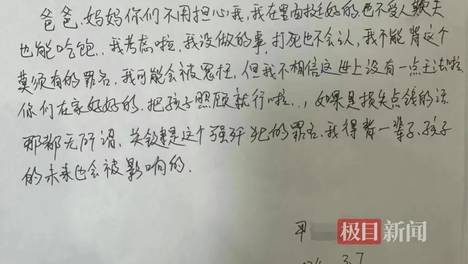 爸爸、妈妈你们不用担心我,我在里面挺好的,也不受人欺夫
也能吃饱..我考虑啦,我没做的事,打死也不会认,我不能背这个
莫须有的罪名,我可能会被冤枉,但我不相信这世上没有一点王法啦
你们在家好好的.把孩子照顾就行啦..,如果是损失点钱的话
那都无所谓,关键是这个强奸犯的罪名.我得背一辈子.孩子
的未来也会被影响的.
甲
极目新闻
3.7